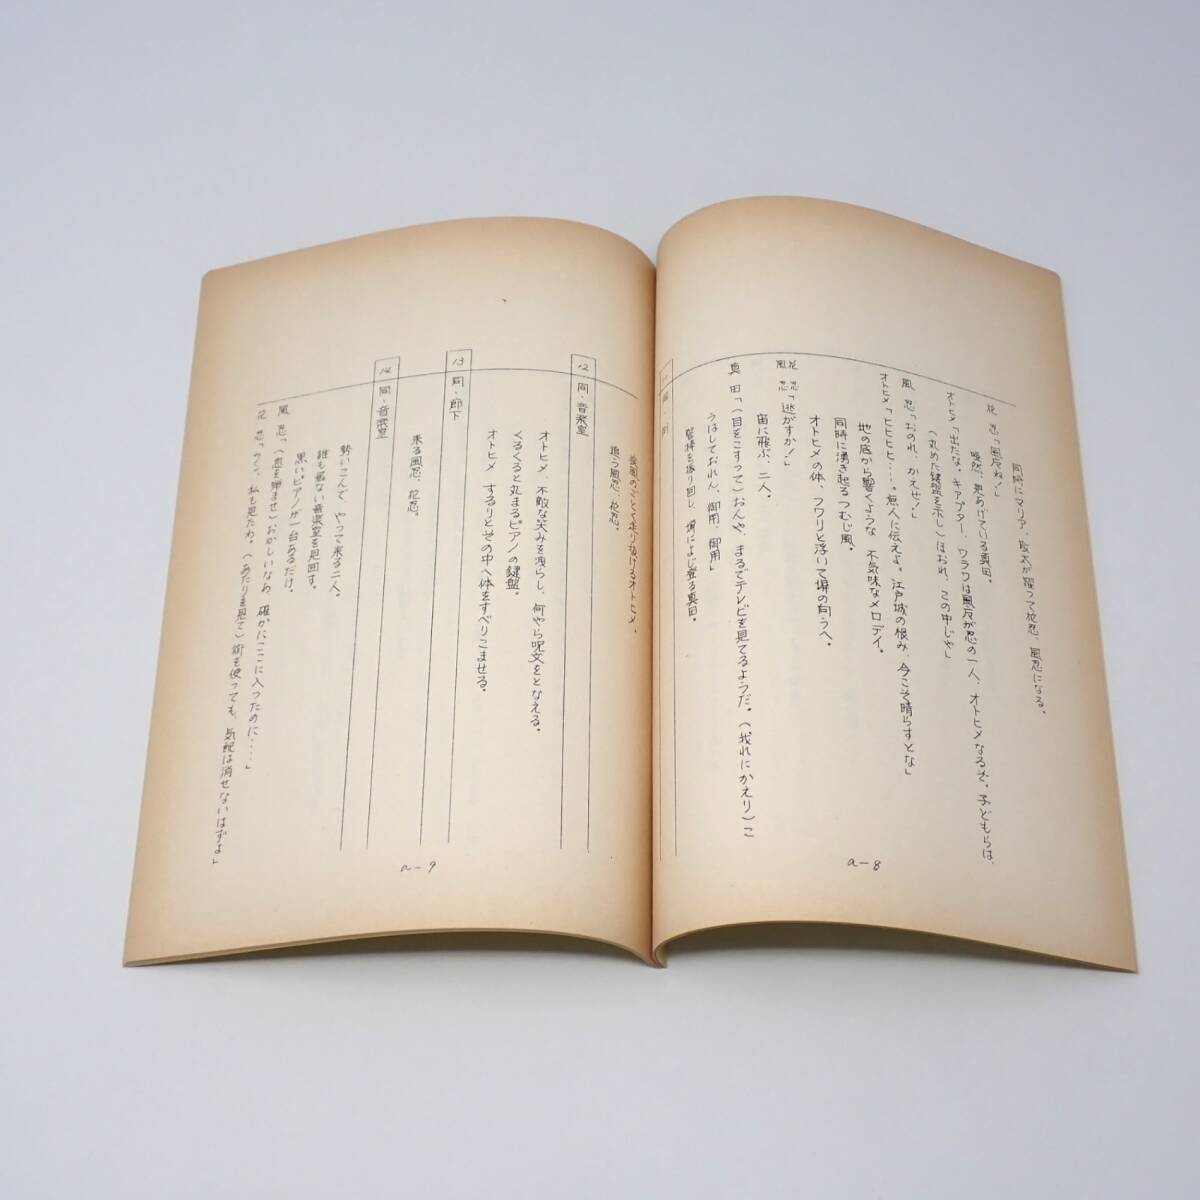 同時にマリア、散太が躍って花忍、風忍になる。
花忍「風忍ね!」
唖然、見あげている真田。
オトヒメ「出たな、キャプター。ワラワは風辰が忍の一人、オトヒメなるぞ。子どもらは、
(丸めた鍵盤を示し)ほおれ、この中じゃ」
風忍「おのれ、かえせ!」
オトヒメ「ヒヒヒヒ‥‥‥無人に伝えよ。江戸城の恨み、今こそ晴らすとな」
地の底から響くような不気味なメロディ。
同時に湧き起るつむじ風。
オトヒメの体、フワリと浮いて塀の向うへ。
花忍
風忍「逃がすか!」
宙に飛ぶ、二人。
真田「(目をこすって)おんや、まるでテレビを見てるようだ。(我れにかえり)こ
うはしておれん、御用、御用」
警棒を振り回し、塀によじ登る真田。
a-8
疾風のごとく走り抜けるオトヒメ、
追う風忍、花忍。
12 同・音楽室
オトヒメ、不敵な笑みを洩らし、何やら呪文をとなえる。
くるくると丸まるピアノの鍵盤。
オトヒメ するりとその中へ体をすべりこませる。
13 同・廊下
来る風忍、花忍。
14 同・音楽室
勢いこんで、やって来る二人。
誰も居ない音楽室を見回す。
黒いピアノが一台あるだけ。
風忍「(息を弾ませ)おかしいなあ、確かにここに入ったのに‥‥」
花忍「ううん、私も見たわ。(あたりを見て)術を使っても、気配は消せないはずよ」
a-9